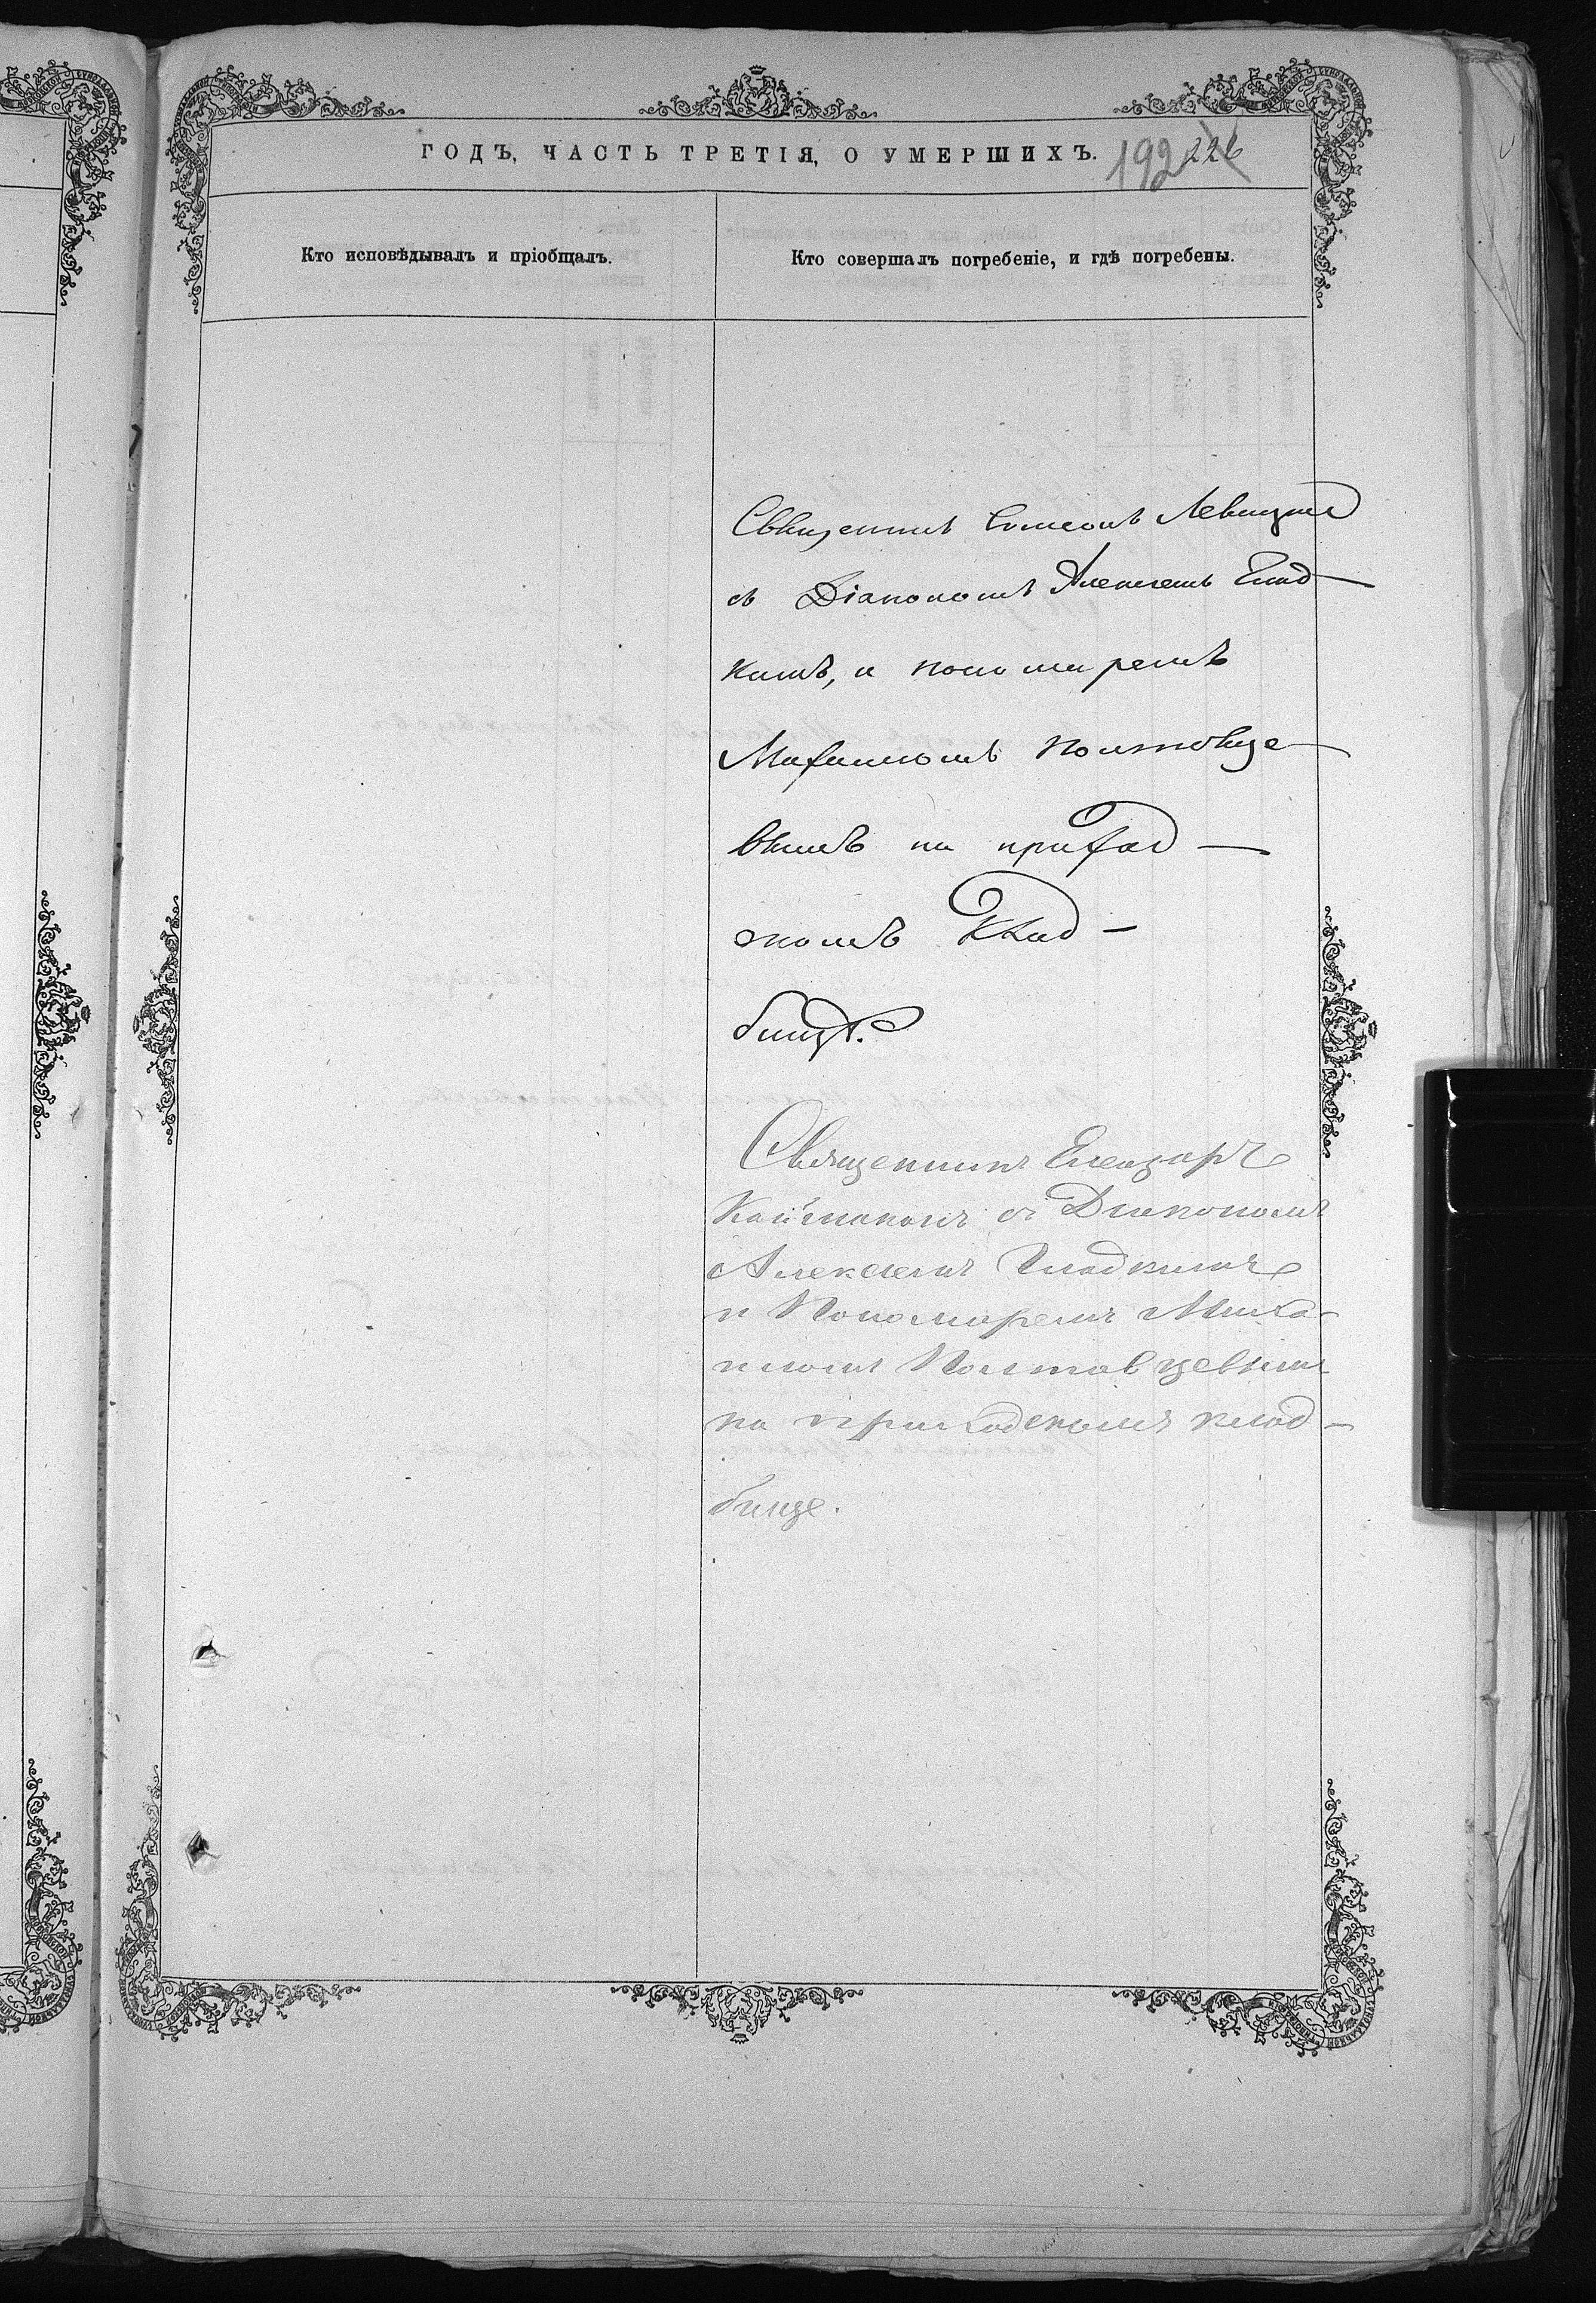 ГОДЪ, ЧАСТЬ ТРЕТІЯ, О УМЕРШИХЪ.
192 226
Кто исповѣдывалъ и пріобщалъ.
Кто совершалъ погребеніе, и гдѣ погребены.
Священникъ Симеонъ Левицкій
съ Діакономъ Алексѣемъ Глад-
кимъ, и пономаремъ
Михаиломъ Полтавце-
вымъ на приход-
скомъ клад-
бищѣ.
Священникъ Елеазаръ
съ Диакономъ
Алексеемъ Гладкимъ
и Пономаремъ Миха-
иломъ Полтавцевымъ
на приходскомъ клад-
бище.